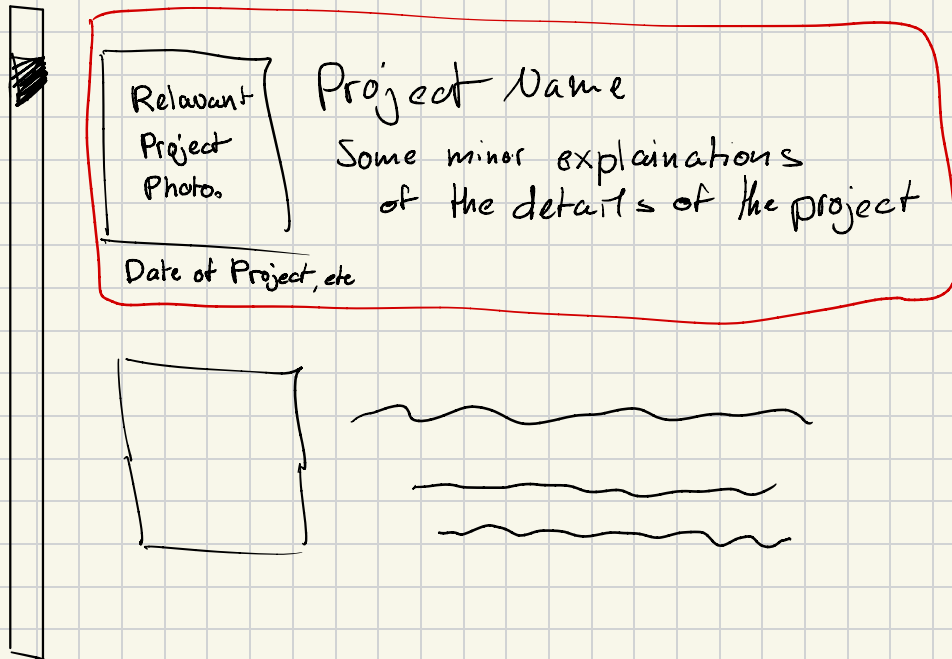 Relavant
Project
Photo.
Project Name
Some minor explainations
of the details of the project
Date of Project, etc